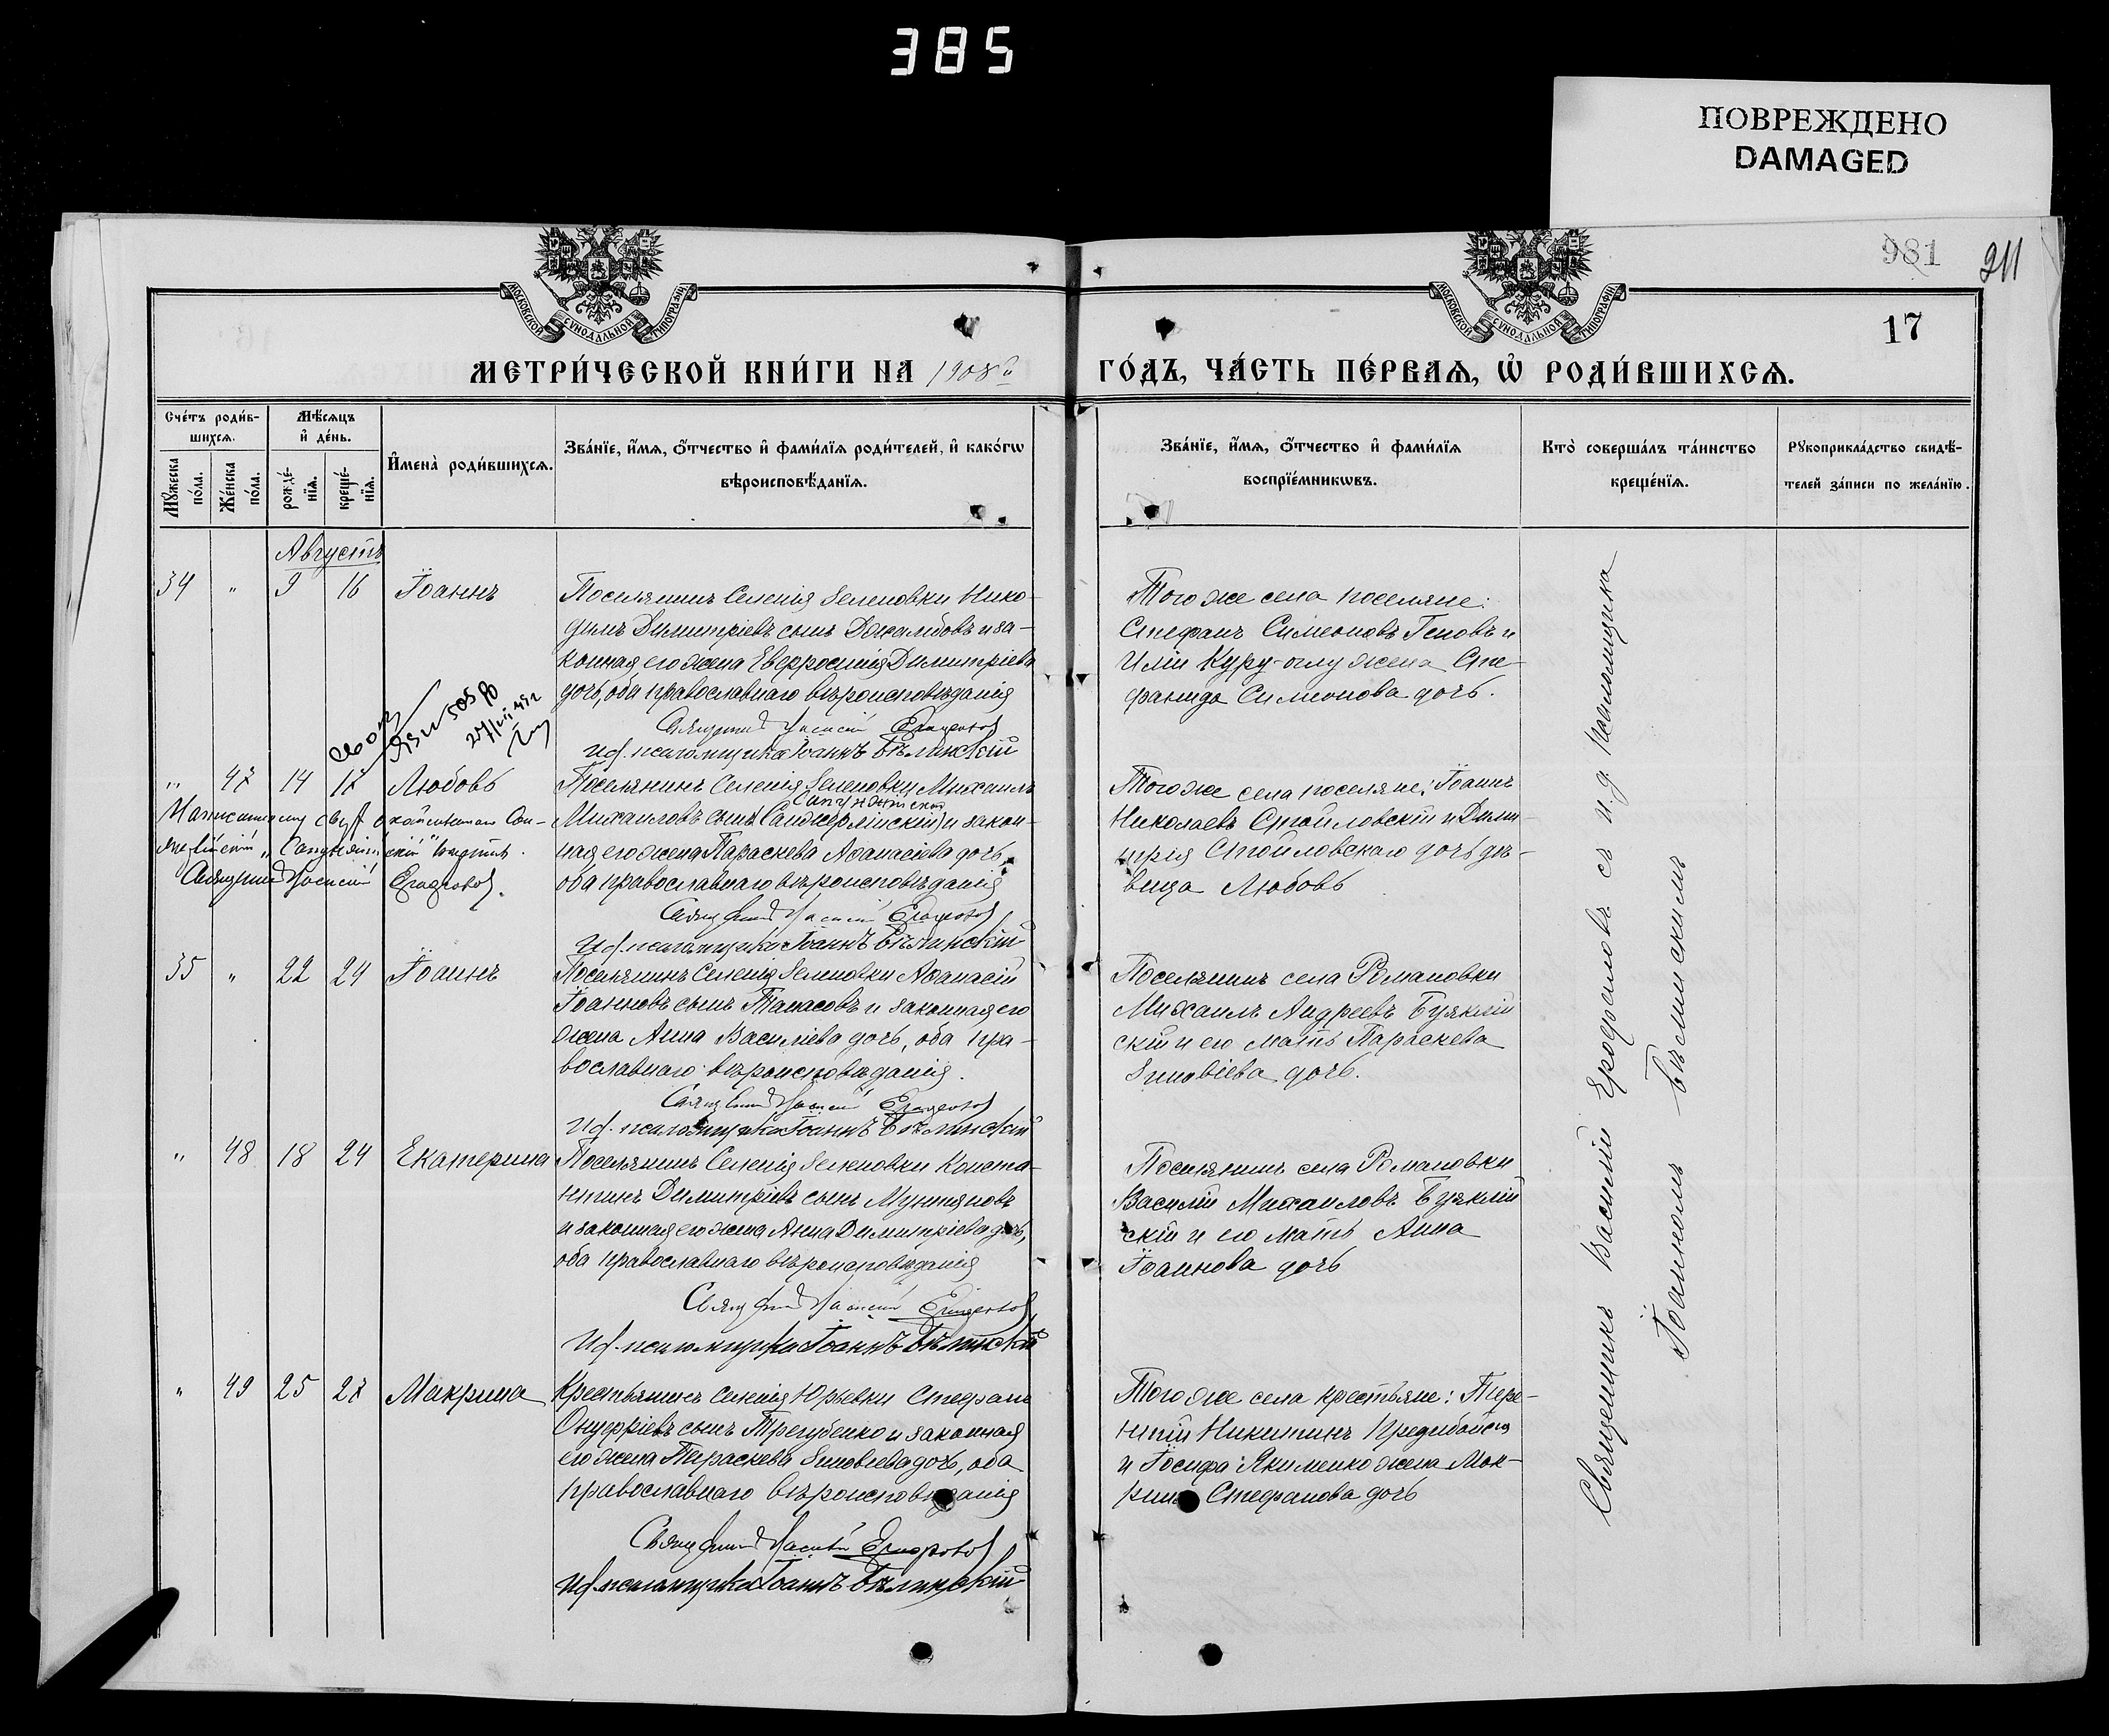 385
ПОВРЕЖДЕНО
DAMAGED
981
211
17
МОСКОВСКОЙ СѴНОДАЛЬНОЙ ТИПОГРАФІИ
МОСКОВСКОЙ СѴНОДАЛЬНОЙ ТИПОГРАФІИ
МЕТРИ́ЧЕСКОЙ КНИ́ГИ НА 1908й
ГО́ДЪ, ЧА́СТЬ ПЕ́РВАѦ, Ѡ҆ РОДИ́ВШИХСѦ.
Сче́тъ роди́в-
шихсѧ.
Мѣ́сѧцъ
и҆ де́нь.
Мꙋ́жеска
по́ла.
Же́нска
по́ла.
рожде́-
нїѧ.
креще́-
нїѧ.
И҆мена̀ роди́вшихсѧ.
Зва́нїе, и҆́мѧ, ѻ҆́тчество и҆ фами́лїѧ роди́телей, и҆ како́гѡ
вѣроисповѣ́данїѧ.
Зва́нїе, и҆́мѧ, ѻ҆́тчество и҆ фами́лїѧ
воспрїе́мникѡвъ.
Кто̀ соверша́лъ та́инство
креще́нїѧ.
Рꙋкоприкла́дство свидѣ́-
телей за́писи по жела́нїю.
Августъ
34 " 9 16 Іоаннъ
Поселянинъ Селенія Зеленовки Нико-
димъ Димитріевъ сынъ Джамбовъ и за-
конная его жена Евфросинія Димитріева
дочь, оба православнаго вѣроисповѣданія
Священникъ Василій Ерофаловъ
И.д. псаломщика Іоаннъ Бѣлинскій
Того же села поселяне:
Стефанъ Симеоновъ Геновъ и
Иліи Куру-оглу жена Сте-
фанида Симеонова дочь.
" 47 14 17 Любовь
Поселянинъ Селенія Зеленовки Михаилъ
Михаиловъ сынъ и закон-
ная его жена Параскева Аѳанасіева дочь,
оба православнаго вѣроисповѣданія
Священникъ Василій Ерофаловъ
И.д. псаломщика Іоаннъ Бѣлинскій
Того же села поселяне: Іоаннъ
Николаевъ Стойловскій и Дими-
трія Стойловскаго дочь дѣ-
вица Любовь
35 " 22 24 Іоаннъ
Поселянинъ Селенія Зеленовки Аѳанасій
Іоанновъ сынъ Танасовъ и законная его
жена Анна Василіева дочь, оба пра-
вославнаго вѣроисповѣданія.
Священникъ Василій Ерофаловъ
И.д. псаломщика Іоаннъ Бѣлинскій
Поселянинъ села Романовки
Михаилъ Андреевъ Буяклій
скій и его мать Параскева
Зиновіева дочь.
" 48 18 24 Екатерина
Поселянинъ Селенія Зеленовки Конста-
нтинъ Димитріевъ сынъ Мунтяновъ
и законная его жена Анна Димитріева дочь,
оба православнаго вѣроисповѣданія
Священникъ Василій Ерофаловъ
И.д. псаломщика Іоаннъ Бѣлинскій
Поселянинъ села Романовки
Василій Михаиловъ Буяклій
скій и его мать Анна
Іоаннова дочь
" 49 25 27 Макрина
Крестьянинъ Селенія Юрьевки Стефанъ
Онуфріевъ сынъ Трегубенко и законная
его жена Параскева Зиновіева дочь, оба
православнаго вѣроисповѣданія
Священникъ Василій Ерофаловъ
И.д. псаломщика Іоаннъ Бѣлинскій
Того же села крестьяне: Тере-
нтій Никитинъ
и Іосифа Якименко жена Мак-
рина Стефанова дочь
Священникъ Василій Ерофаловъ съ и.д. псаломщика
Іоанномъ Бѣлинскимъ